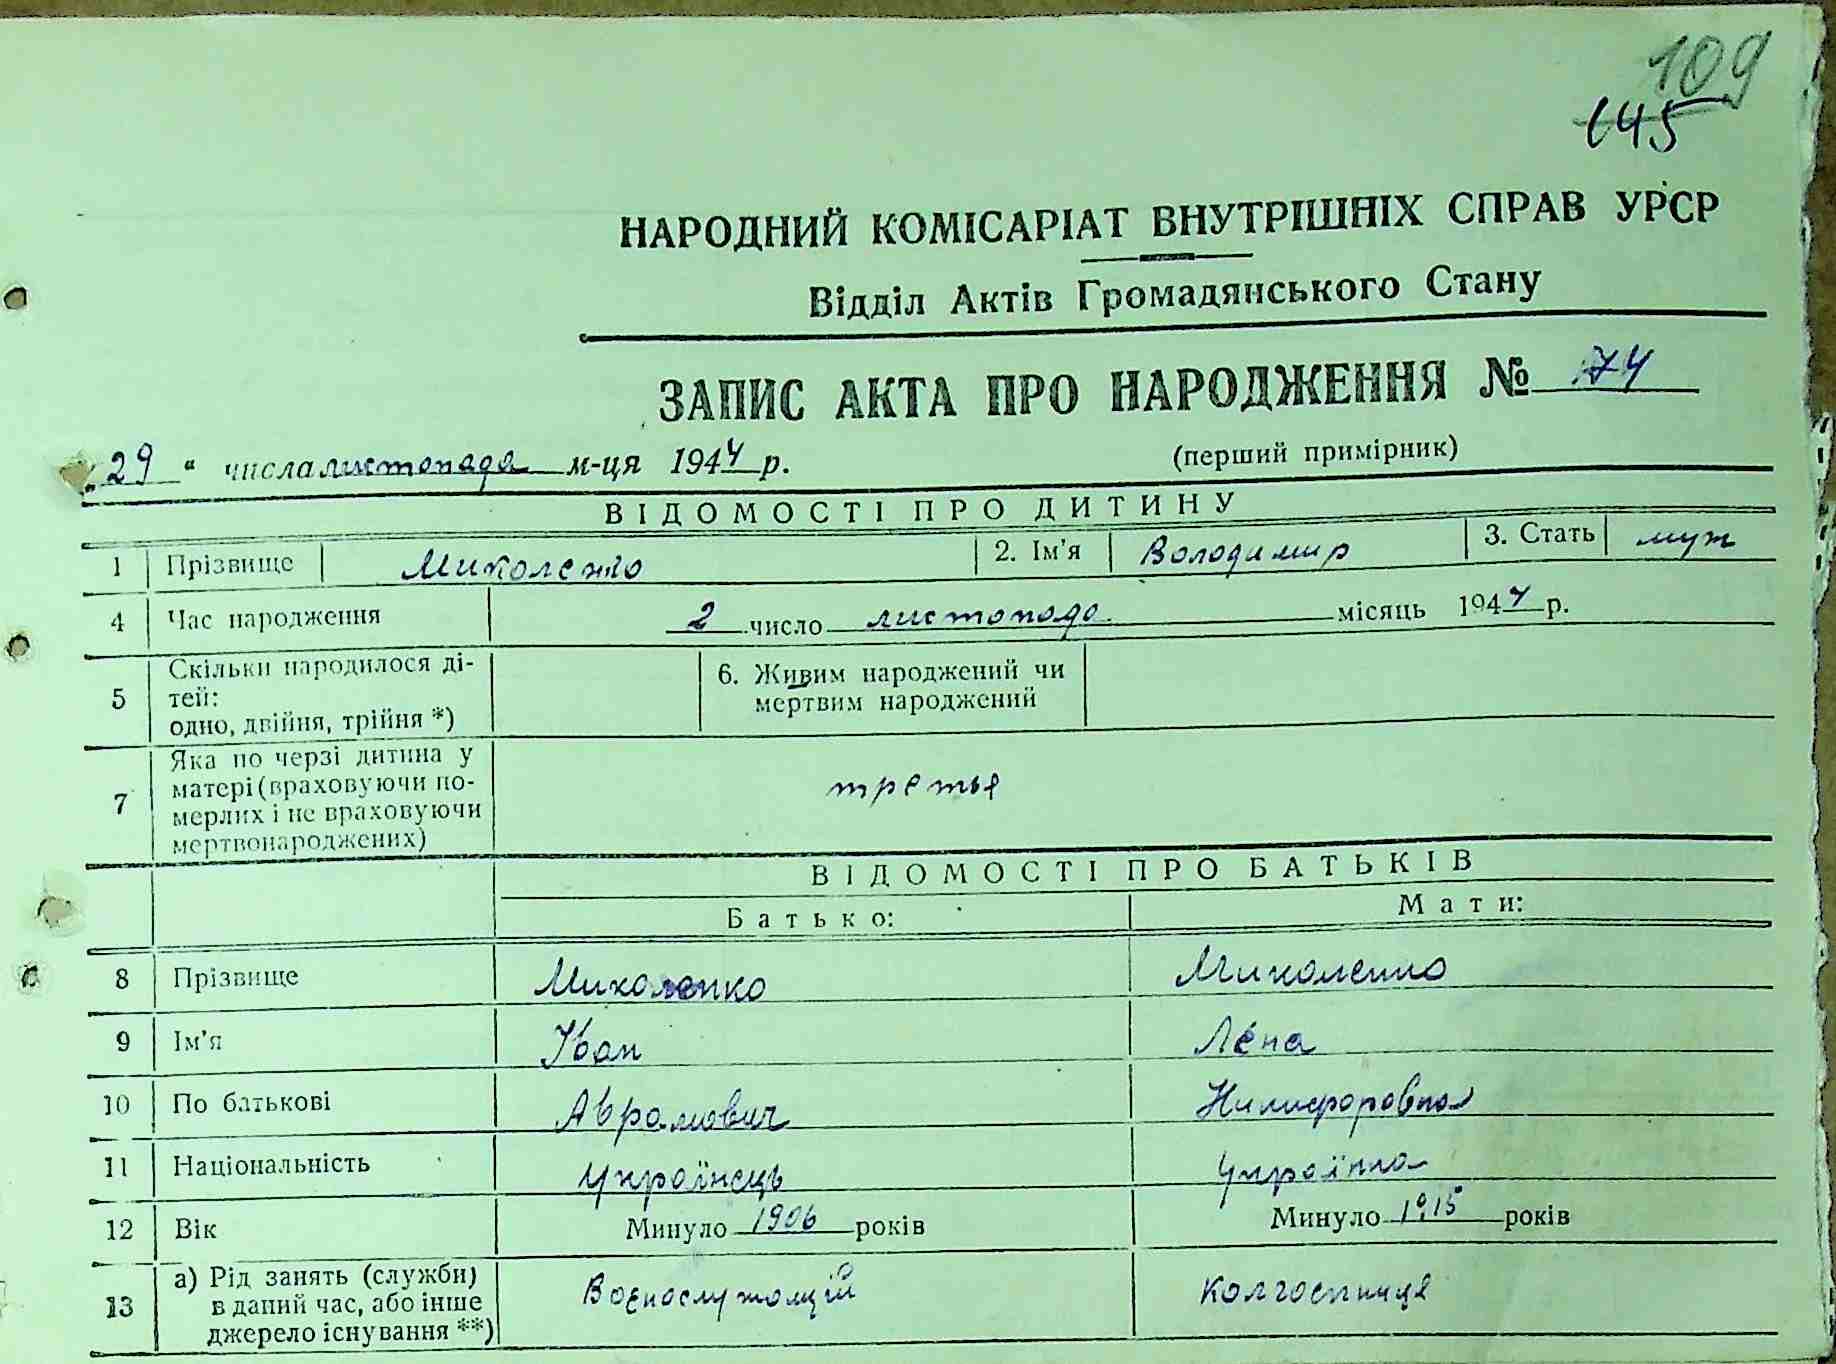 109
145
НАРОДНИЙ КОМІСАРІАТ ВНУТРІШНІХ СПРАВ УРСР
Відділ Актів Громадянського Стану
ЗАПИС АКТА ПРО НАРОДЖЕННЯ № 74
„29“ числа листопада м-ця 1944 р. (перший примірник)
ВІДОМОСТІ ПРО ДИТИНУ
1 Прізвище Миколенко 2. Ім'я Володимир 3. Стать муж
4 Час народження 2 число листопада місяць 1944 р.
5 Скільки народилося ді-
тей:
одно, двійня, трійня *)
6. Живим народжений чи
мертвим народжений
7 Яка по черзі дитина у
матері (враховуючи по-
мерлих і не враховуючи
мертвонароджених)
третья
ВІДОМОСТІ ПРО БАТЬКІВ
Батько: Мати:
8 Прізвище Миколенко Миколенко
9 Ім'я Іван Лєна
10 По батькові Аврамович Никифоровна
11 Національність Українець Українка
12 Вік Минуло 1906 років Минуло 1915 років
13 а) Рід занять (служби)
в даний час, або інше
джерело існування **)
Воєнослужащій Колгоспниця